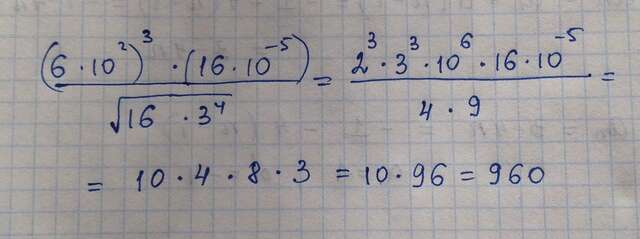 (6 · 10²)³ · (16 · 10⁻⁵) / √(16 · 3⁴) = 2³ · 3³ · 10⁶ · 16 · 10⁻⁵ / 4 · 9 =
= 10 · 4 · 8 · 3 = 10 · 96 = 960